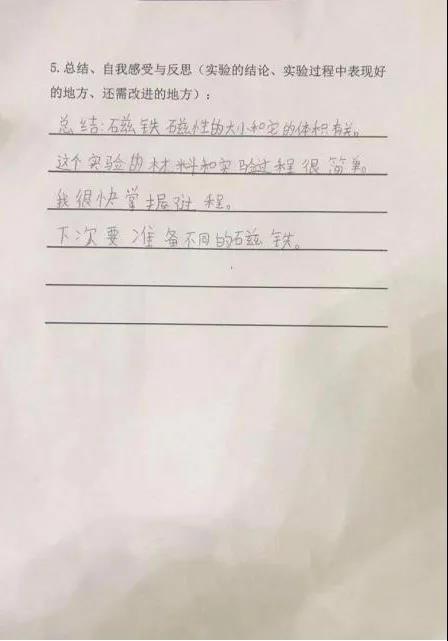 5.总结、自我感受与反思（实验的结论、实验过程中表现好
的地方、还需改进的地方）：
总结:石兹铁石兹性的大小和它的体积有关。
这个实验的材料和实验过程很简单。
我很快掌握过程。
下次要准备不同的石兹铁。